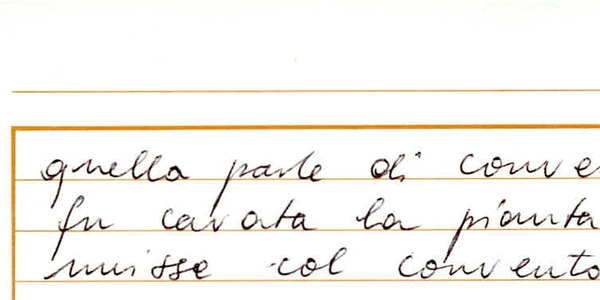 quella parte di conve
fu cavata la pianta
unisse col convento